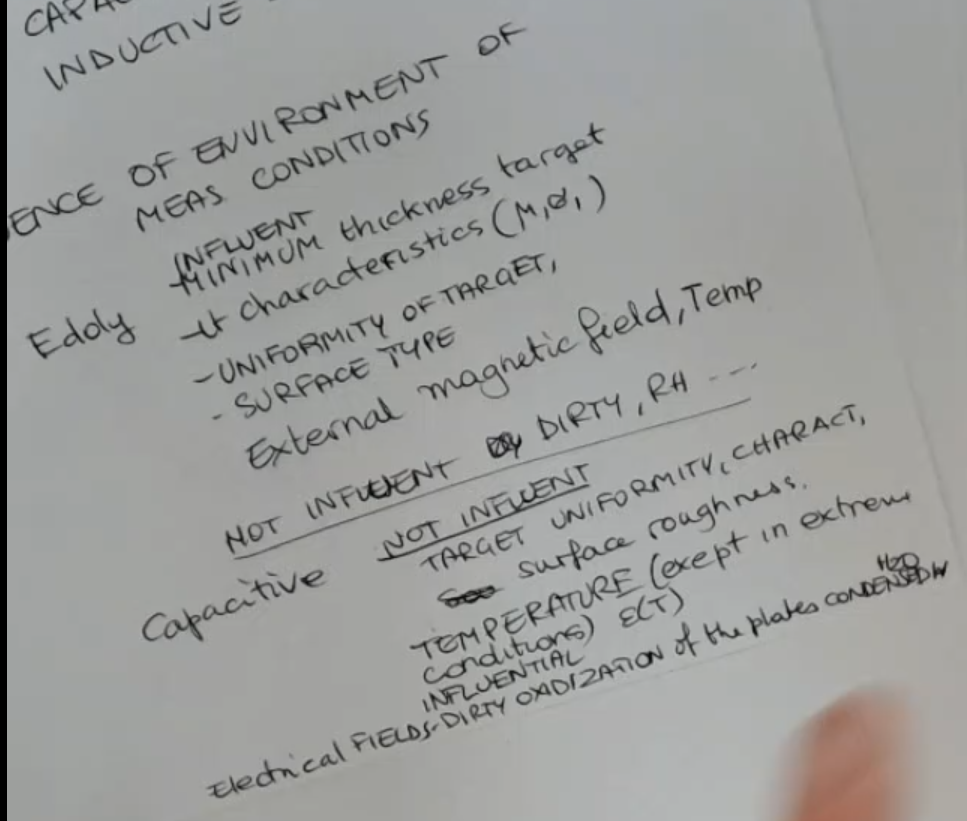 CAPAC
INDUCTIVE
ENCE OF ENVIRONMENT OF
MEAS CONDITIONS
INFLUENT
Eddy
MINIMUM thickness target
characteristics (M,σ,)
-UNIFORMITY OF TARGET,
- SURFACE TYPE
External magnetic field, Temp
NOT INFLUENT DIRTY, RH ---
Capacitive NOT INFLUENT
TARGET UNIFORMITY, CHARACT,
surface roughness.
TEMPERATURE (exept in extreme
conditions) ε(T)
INFLUENTIAL
Electrical FIELDS-DIRTY OXIDIZATION of the plates CONDENSED
H2O